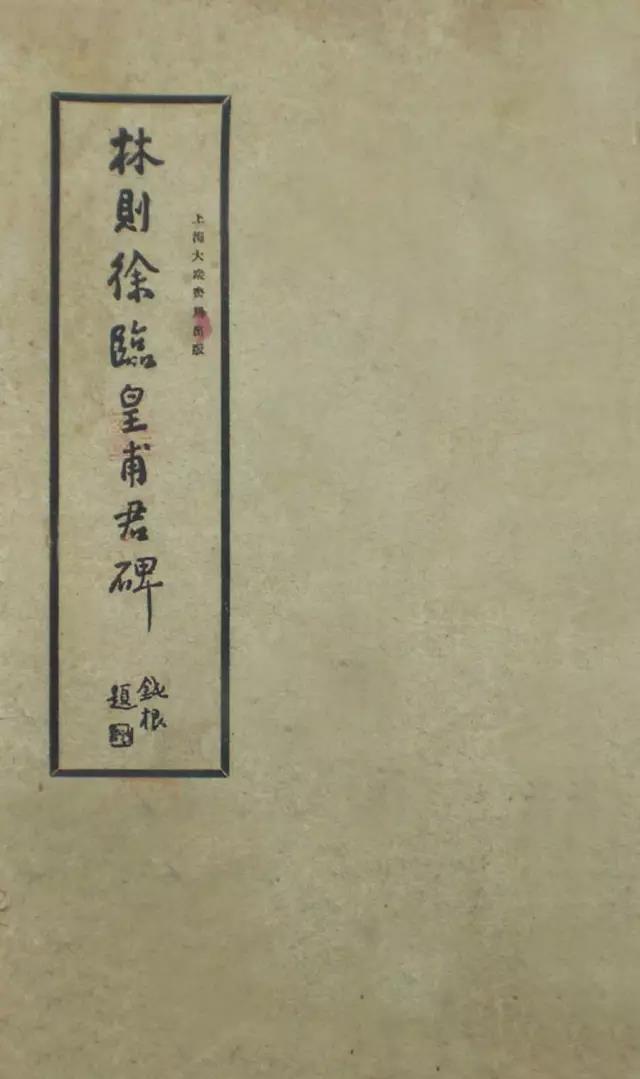 上海大眾書局出版
林則徐臨皇甫君碑
鈍根
題